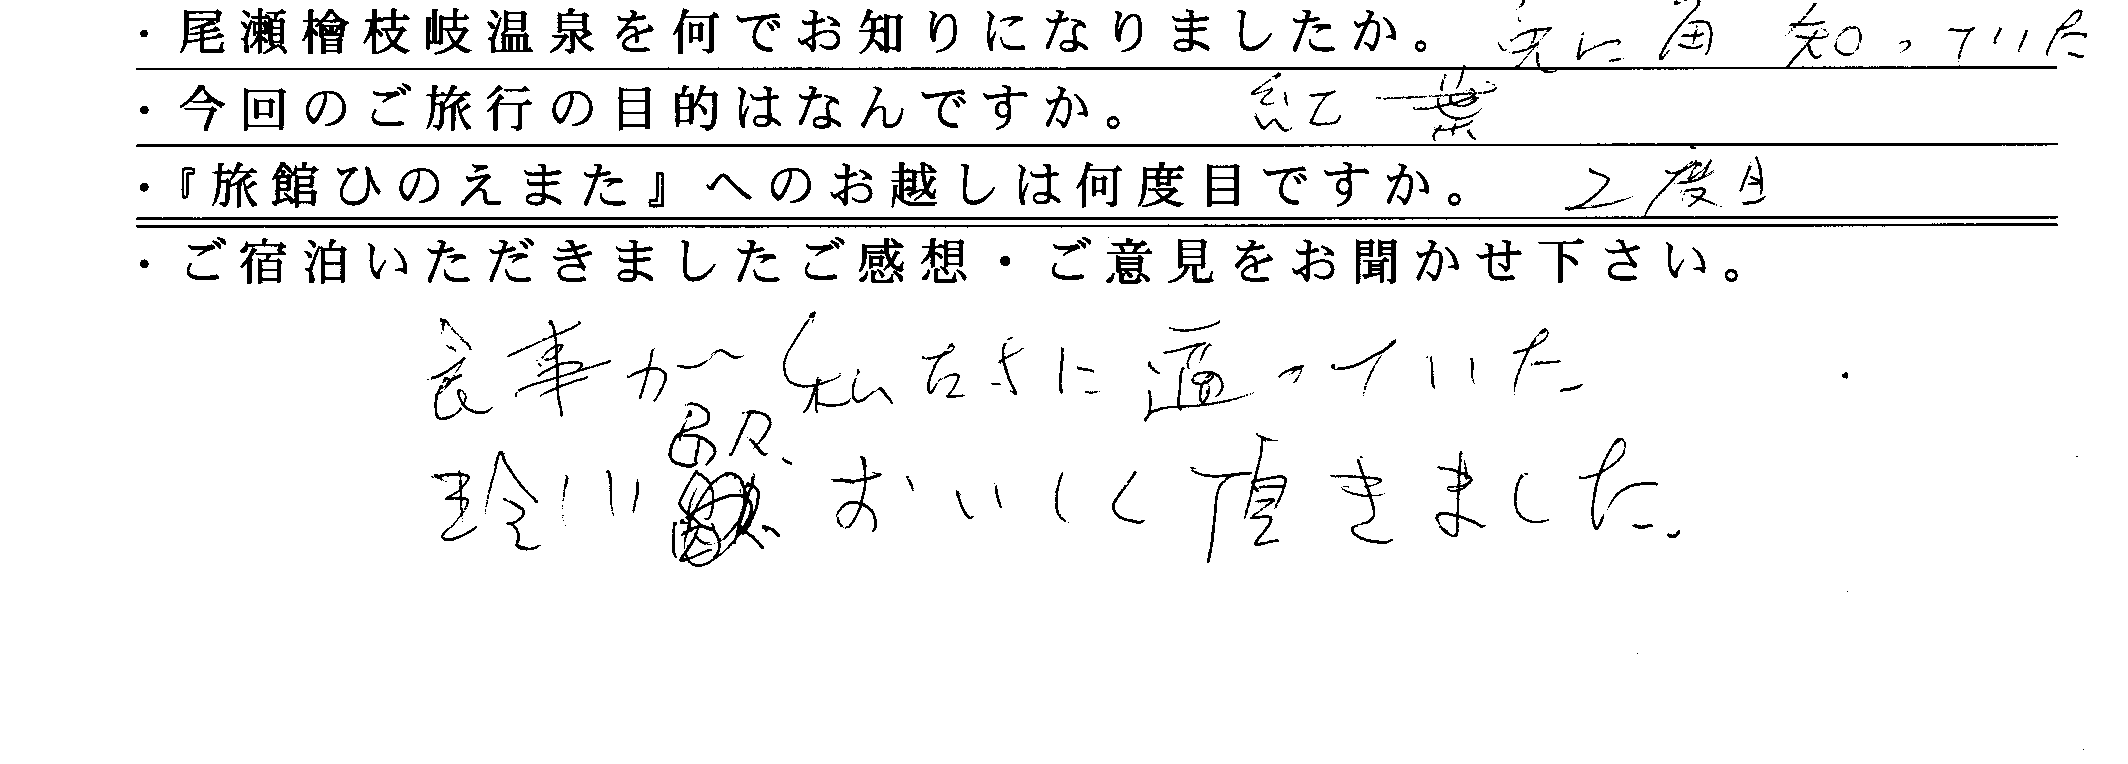 ・尾瀬檜枝岐温泉を何でお知りになりましたか。 兎に角 知っていた
・今回のご旅行の目的はなんですか。 紅葉
・『旅館ひのえまた』へのお越しは何度目ですか。 2度目
・ご宿泊いただきましたご感想・ご意見をお聞かせ下さい。
食事が私たちに適っていた
おいしく頂きました。